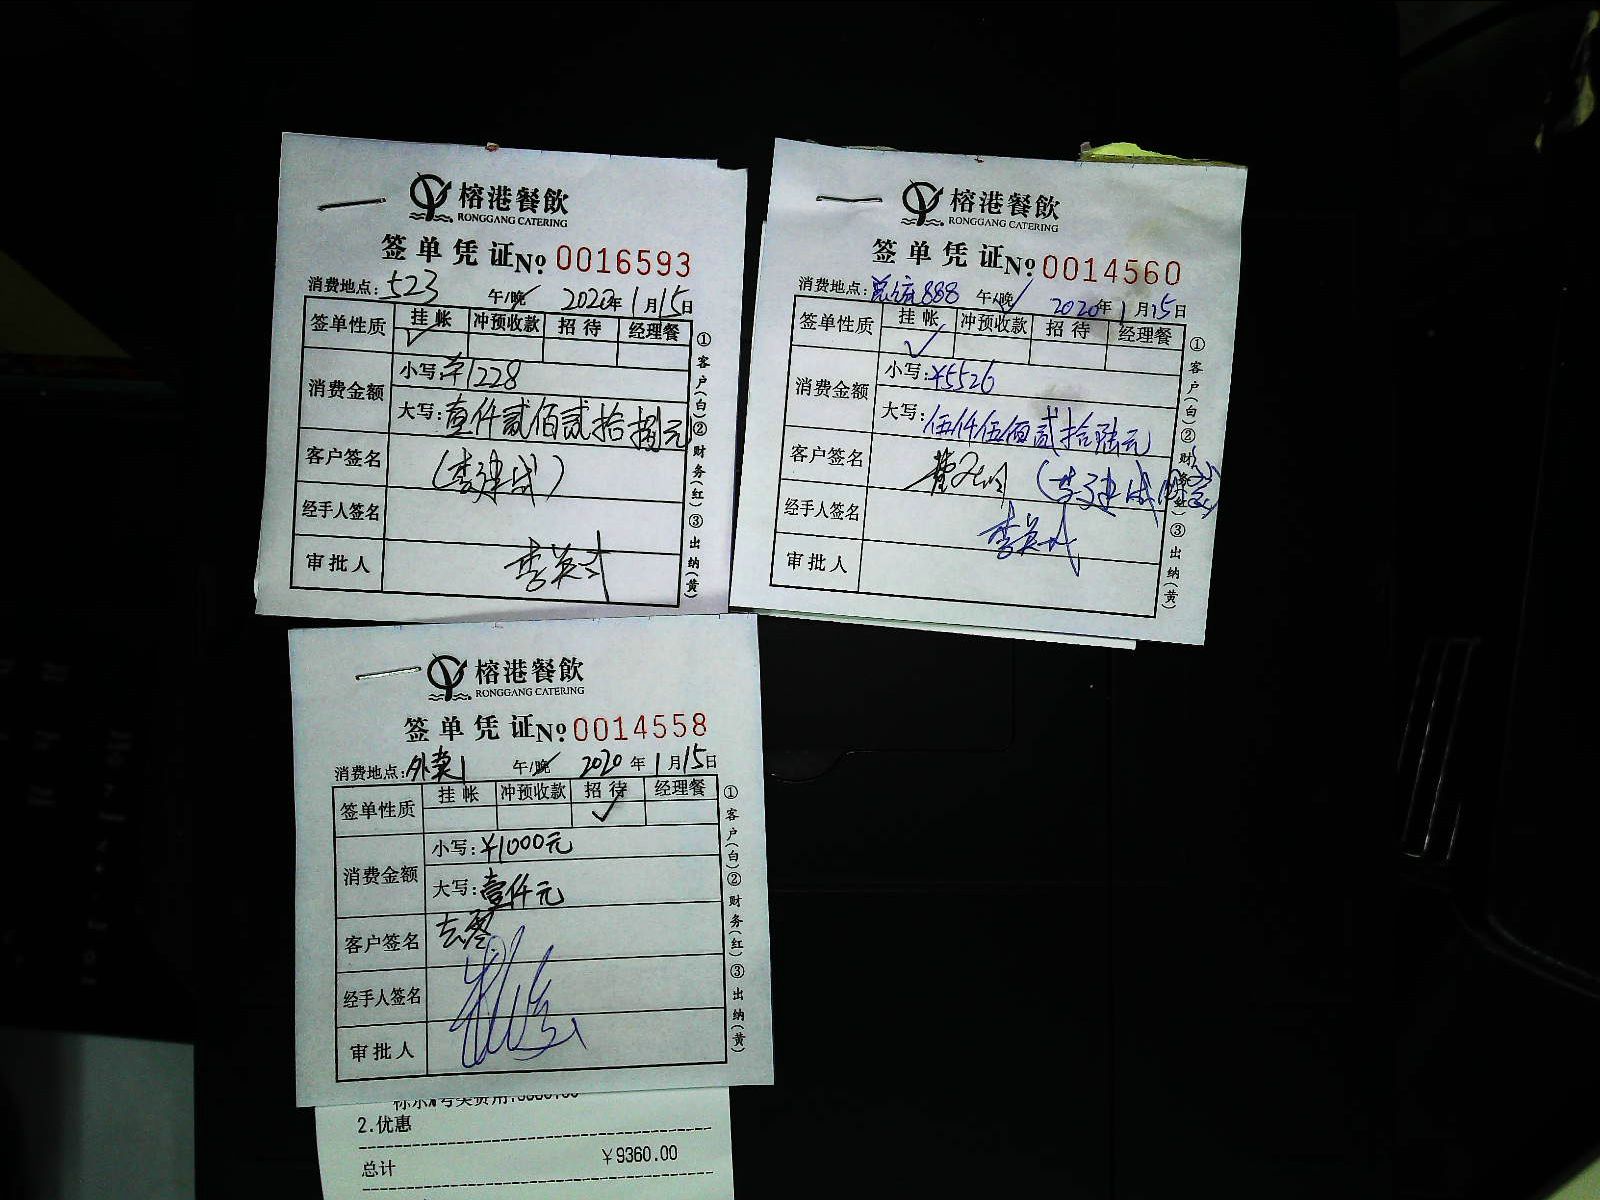 榕港餐飲
RONGGANG CATERING
签单凭证№ 0016593
消费地点:523 午/晚 2020年1月15日
签单性质 挂帐 冲预收款 招待 经理餐
✓
消费金额 小写:¥1228
大写:壹仟贰佰贰拾捌元
客户签名 (李建成)
经手人签名
审批人 李英
①客户(白)②财务(红)③出纳(黄)
榕港餐飲
RONGGANG CATERING
签单凭证№ 0014560
消费地点: 888 午/晚 2020年1月15日
签单性质 挂帐 冲预收款 招待 经理餐
✓
消费金额 小写:¥5526
大写:伍仟伍佰贰拾陆元
客户签名 (李建成
经手人签名 李英
审批人
①客户(白)②财务(红)③出纳(黄)
榕港餐飲
RONGGANG CATERING
签单凭证№ 0014558
消费地点:外卖1 午/晚 2020年1月15日
签单性质 挂帐 冲预收款 招待 经理餐
✓
消费金额 小写:¥1000元
大写:壹仟元
客户签名 去零
经手人签名
审批人
①客户(白)②财务(红)③出纳(黄)
2.优惠
总计 ¥9360.00